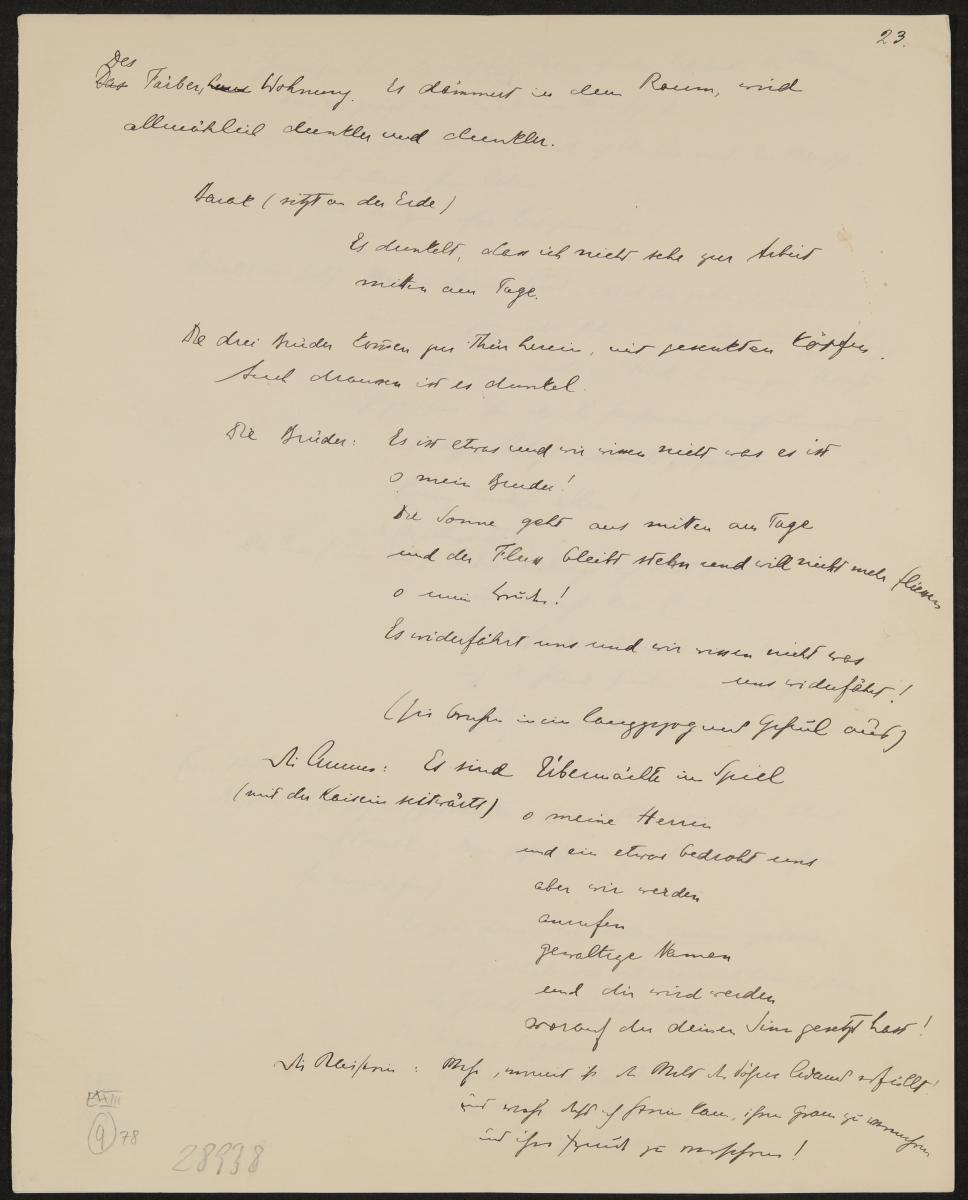 23.
Des
Das Färbers Wohnung. Es dämmert in dem Raum, wird
allmählich dunkler und dunkler.
Barak (sitzt an der Erde)
Es dunkelt, dass ich nicht sehe zur Arbeit
mitten am Tage.
Die drei Brüder kom̄en zur Thür herein, mit gesenkten Köpfen.
Auch draussen ist es dunkel.
Die Brüder: Es ist etwas und wir wissen nicht was es ist
o mein Bruder!
Die Sonne geht aus mitten am Tage
und der Fluss bleibt stehn und will nicht mehr fliessen
o mein Bruder!
Es widerfährt uns und wir wissen nicht was
uns widerfährt!
(sie brechen in ein langgezogenes Geheul aus)
Die Amme: Es sind Übermächte im Spiel
(mit der Kaiserin seitwärts)
o meine Herrin
und ein etwas bedroht uns
aber wir werden
anrufen
gewaltige Namen
und dir wird werden
worauf du deinen Sinn gesetzt hast!
Die Kaiserin: Wehe, womit ist die Welt der Söhne Adams erfüllt!
und wehe dass ich herein kam, ihren Gram zu vermehren
und ihre Freude zu verzehren!
EXXIII
9 78
28938